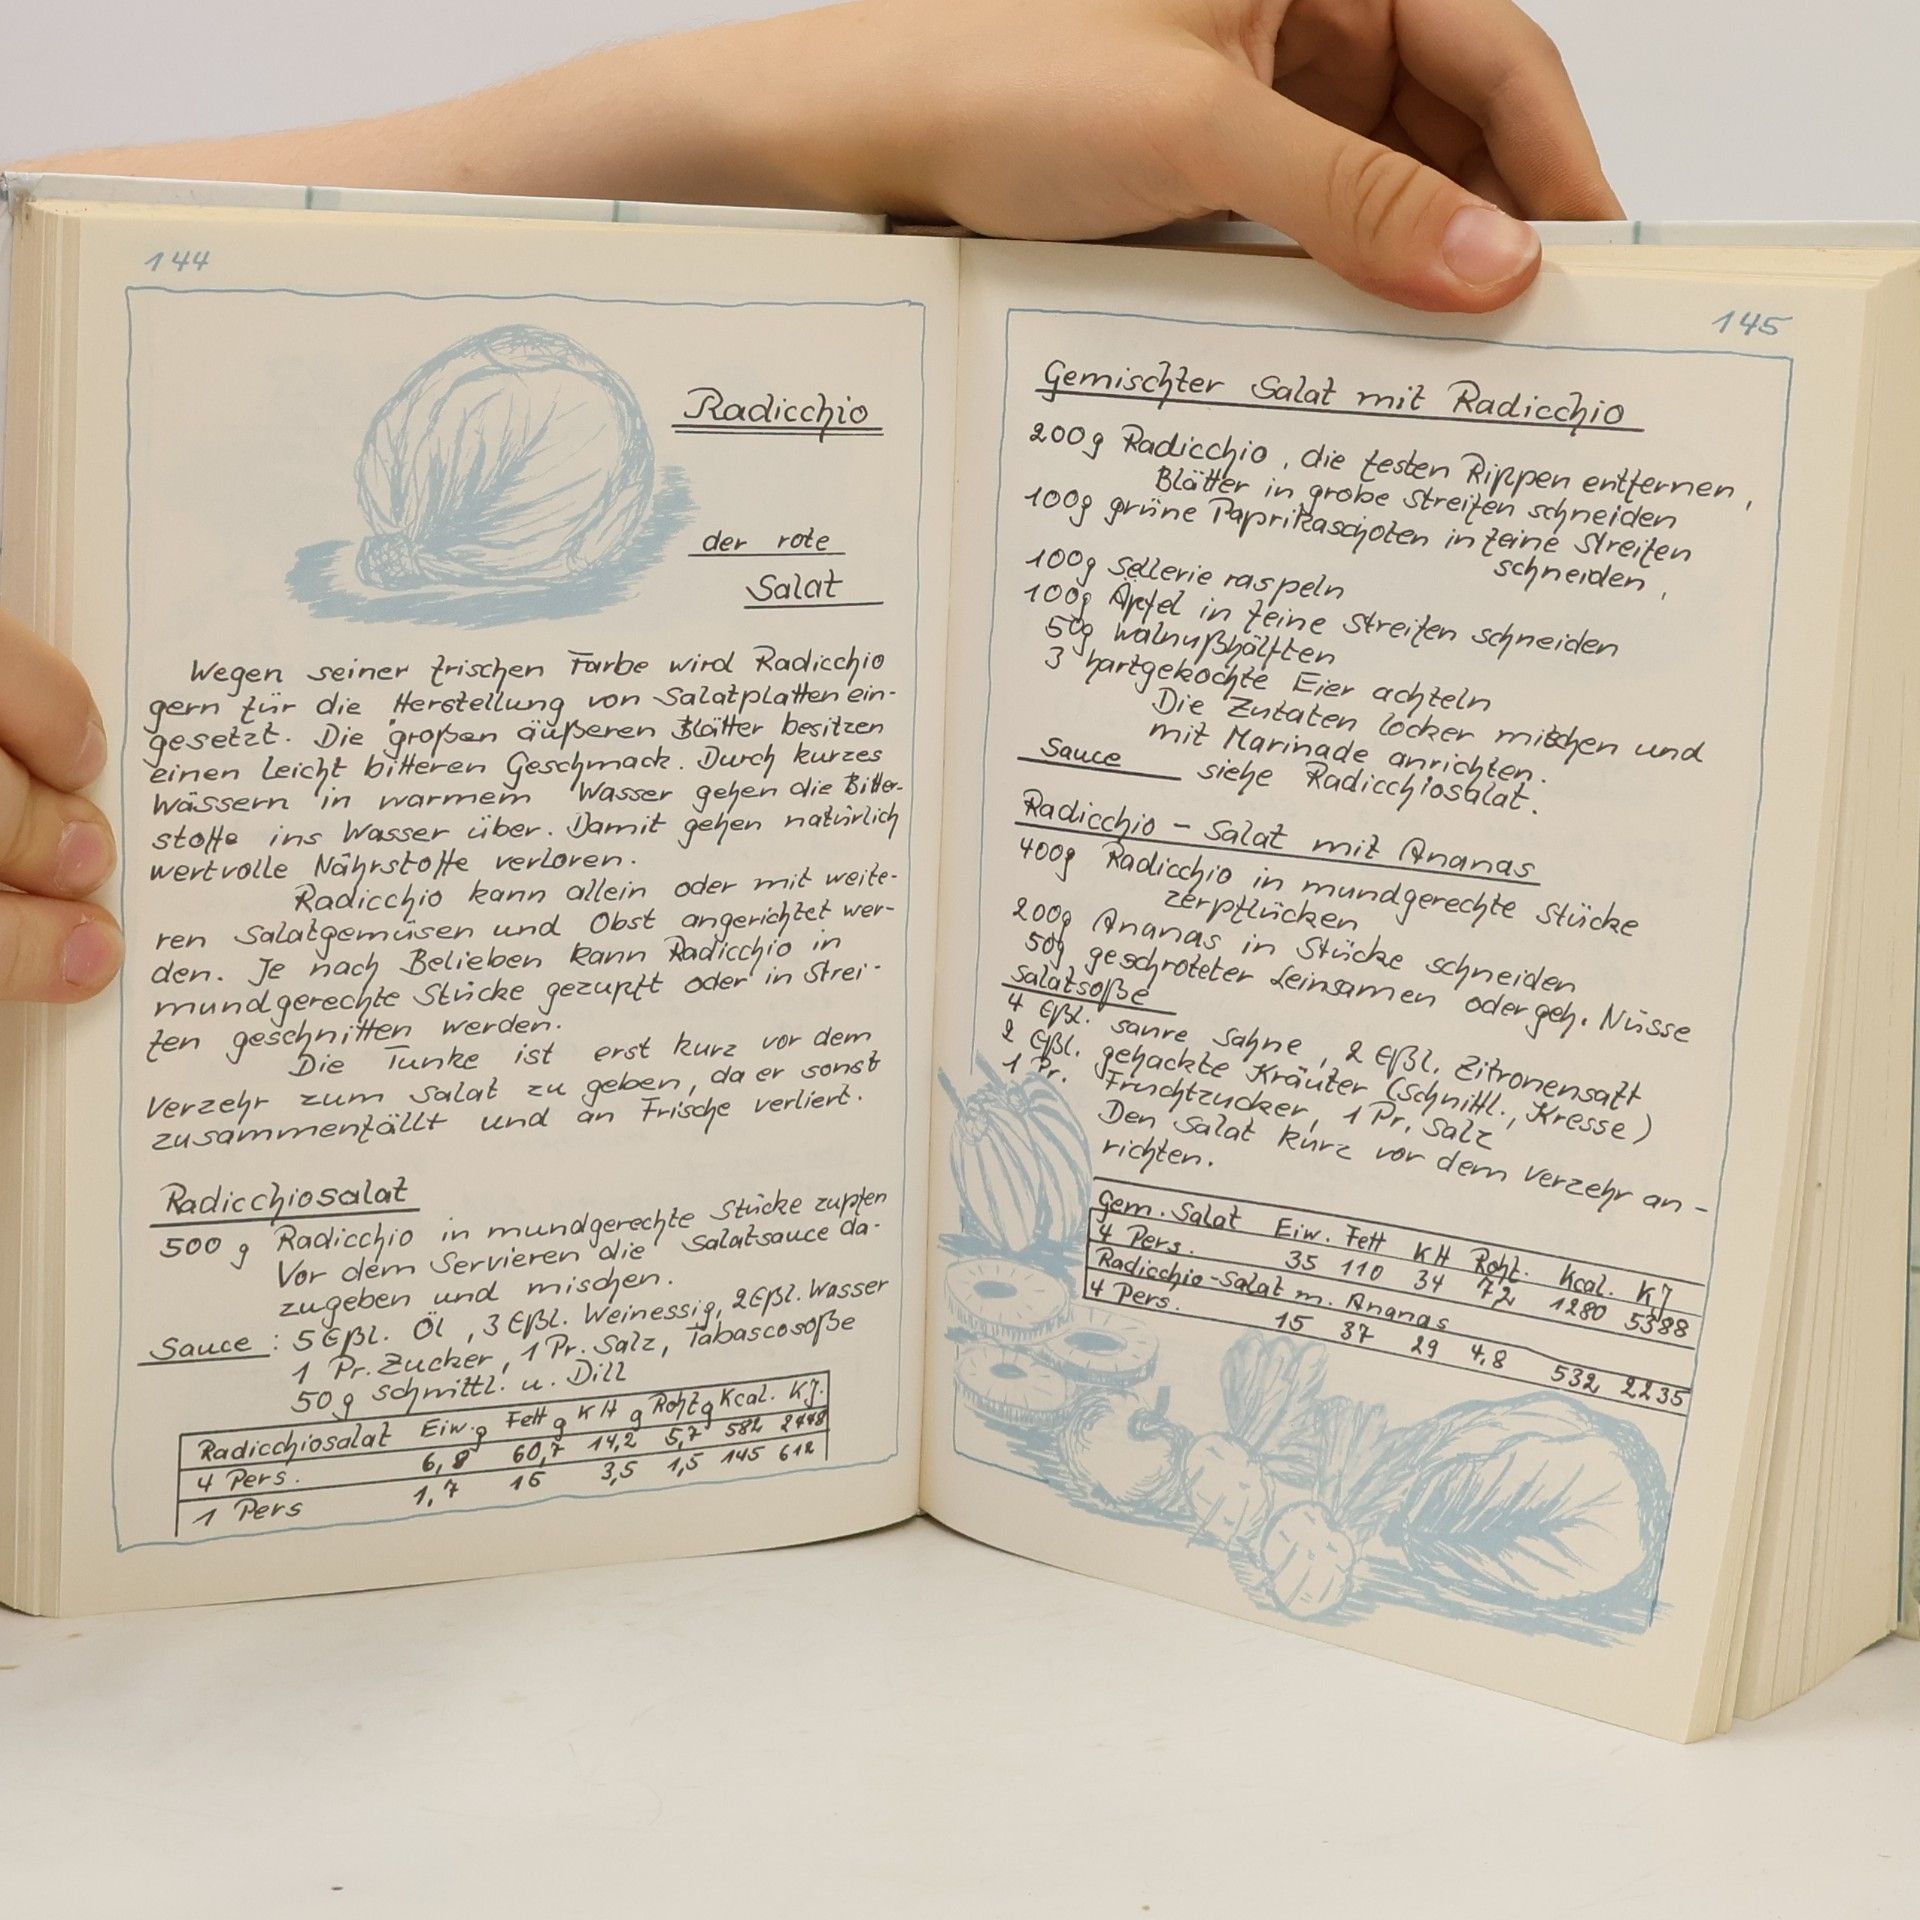 144
Radicchio
der rote
Salat
Wegen seiner frischen Farbe wird Radicchio
gern für die Herstellung von Salatplatten ein-
gesetzt. Die großen äußeren Blätter besitzen
einen leicht bitteren Geschmack. Durch kurzes
Wässern in warmem Wasser gehen die Bitter-
stoffe ins Wasser über. Damit gehen natürlich
wertvolle Nährstoffe verloren.
Radicchio kann allein oder mit weite-
ren Salatgemüsen und Obst angerichtet wer-
den. Je nach Belieben kann Radicchio in
mundgerechte Stücke gezupft oder in Strei-
fen geschnitten werden.
Die Tunke ist erst kurz vor dem
Verzehr zum Salat zu geben, da er sonst
zusammenfällt und an Frische verliert.
Radicchiosalat
500 g Radicchio in mundgerechte Stücke zupfen
Vor dem Servieren die Salatsauce da-
zugeben und mischen.
Sauce : 5 Eßl. Öl, 3 Eßl. Weinessig, 2 Eßl. Wasser
1 Pr. Zucker, 1 Pr. Salz, Tabascosoße
50 g Schnittl. u. Dill
Radicchiosalat Eiw. g Fett g KH g Rohf g Kcal. KJ.
4 Pers. 6,8 60,7 14,2 5,7 582 2448
1 Pers 1,7 16 3,5 1,5 145 612
145
Gemischter Salat mit Radicchio
200g Radicchio, die festen Rippen entfernen,
Blätter in grobe Streifen schneiden
100g grüne Paprikaschoten in feine Streifen
schneiden,
100g Sellerie raspeln
100g Äpfel in feine Streifen schneiden
50g Walnußhälften
3 hartgekochte Eier achteln
Die Zutaten locker mischen und
mit Marinade anrichten.
Sauce siehe Radicchiosalat.
Radicchio - Salat mit Ananas
400g Radicchio in mundgerechte Stücke
zerpflücken
200g Ananas in Stücke schneiden
50g geschroteter Leinsamen oder geh. Nüsse
Salatsoße
4 Eßl. saure Sahne, 2 Eßl. Zitronensaft
2 Eßl. gehackte Kräuter (Schnittl., Kresse)
1 Pr. Fruchtzucker, 1 Pr. Salz
Den Salat kurz vor dem Verzehr an-
richten.
Gem. Salat Eiw. Fett KH Rohf. Kcal. KJ
4 Pers. 35 110 34 7,2 1280 5388
Radicchio-Salat m. Ananas
4 Pers. 15 37 29 4,8 532 2235